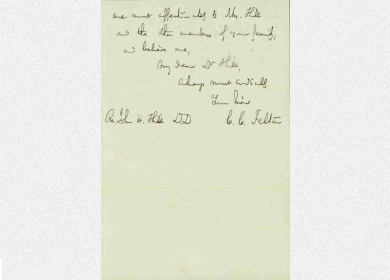 are most affectionately to Mrs. Hale
and the other members of your family,
and believe me,
My dear Dr Hale,
always most cordially
Your friend
Rev. John H. Hale D.D. C. C. Felton